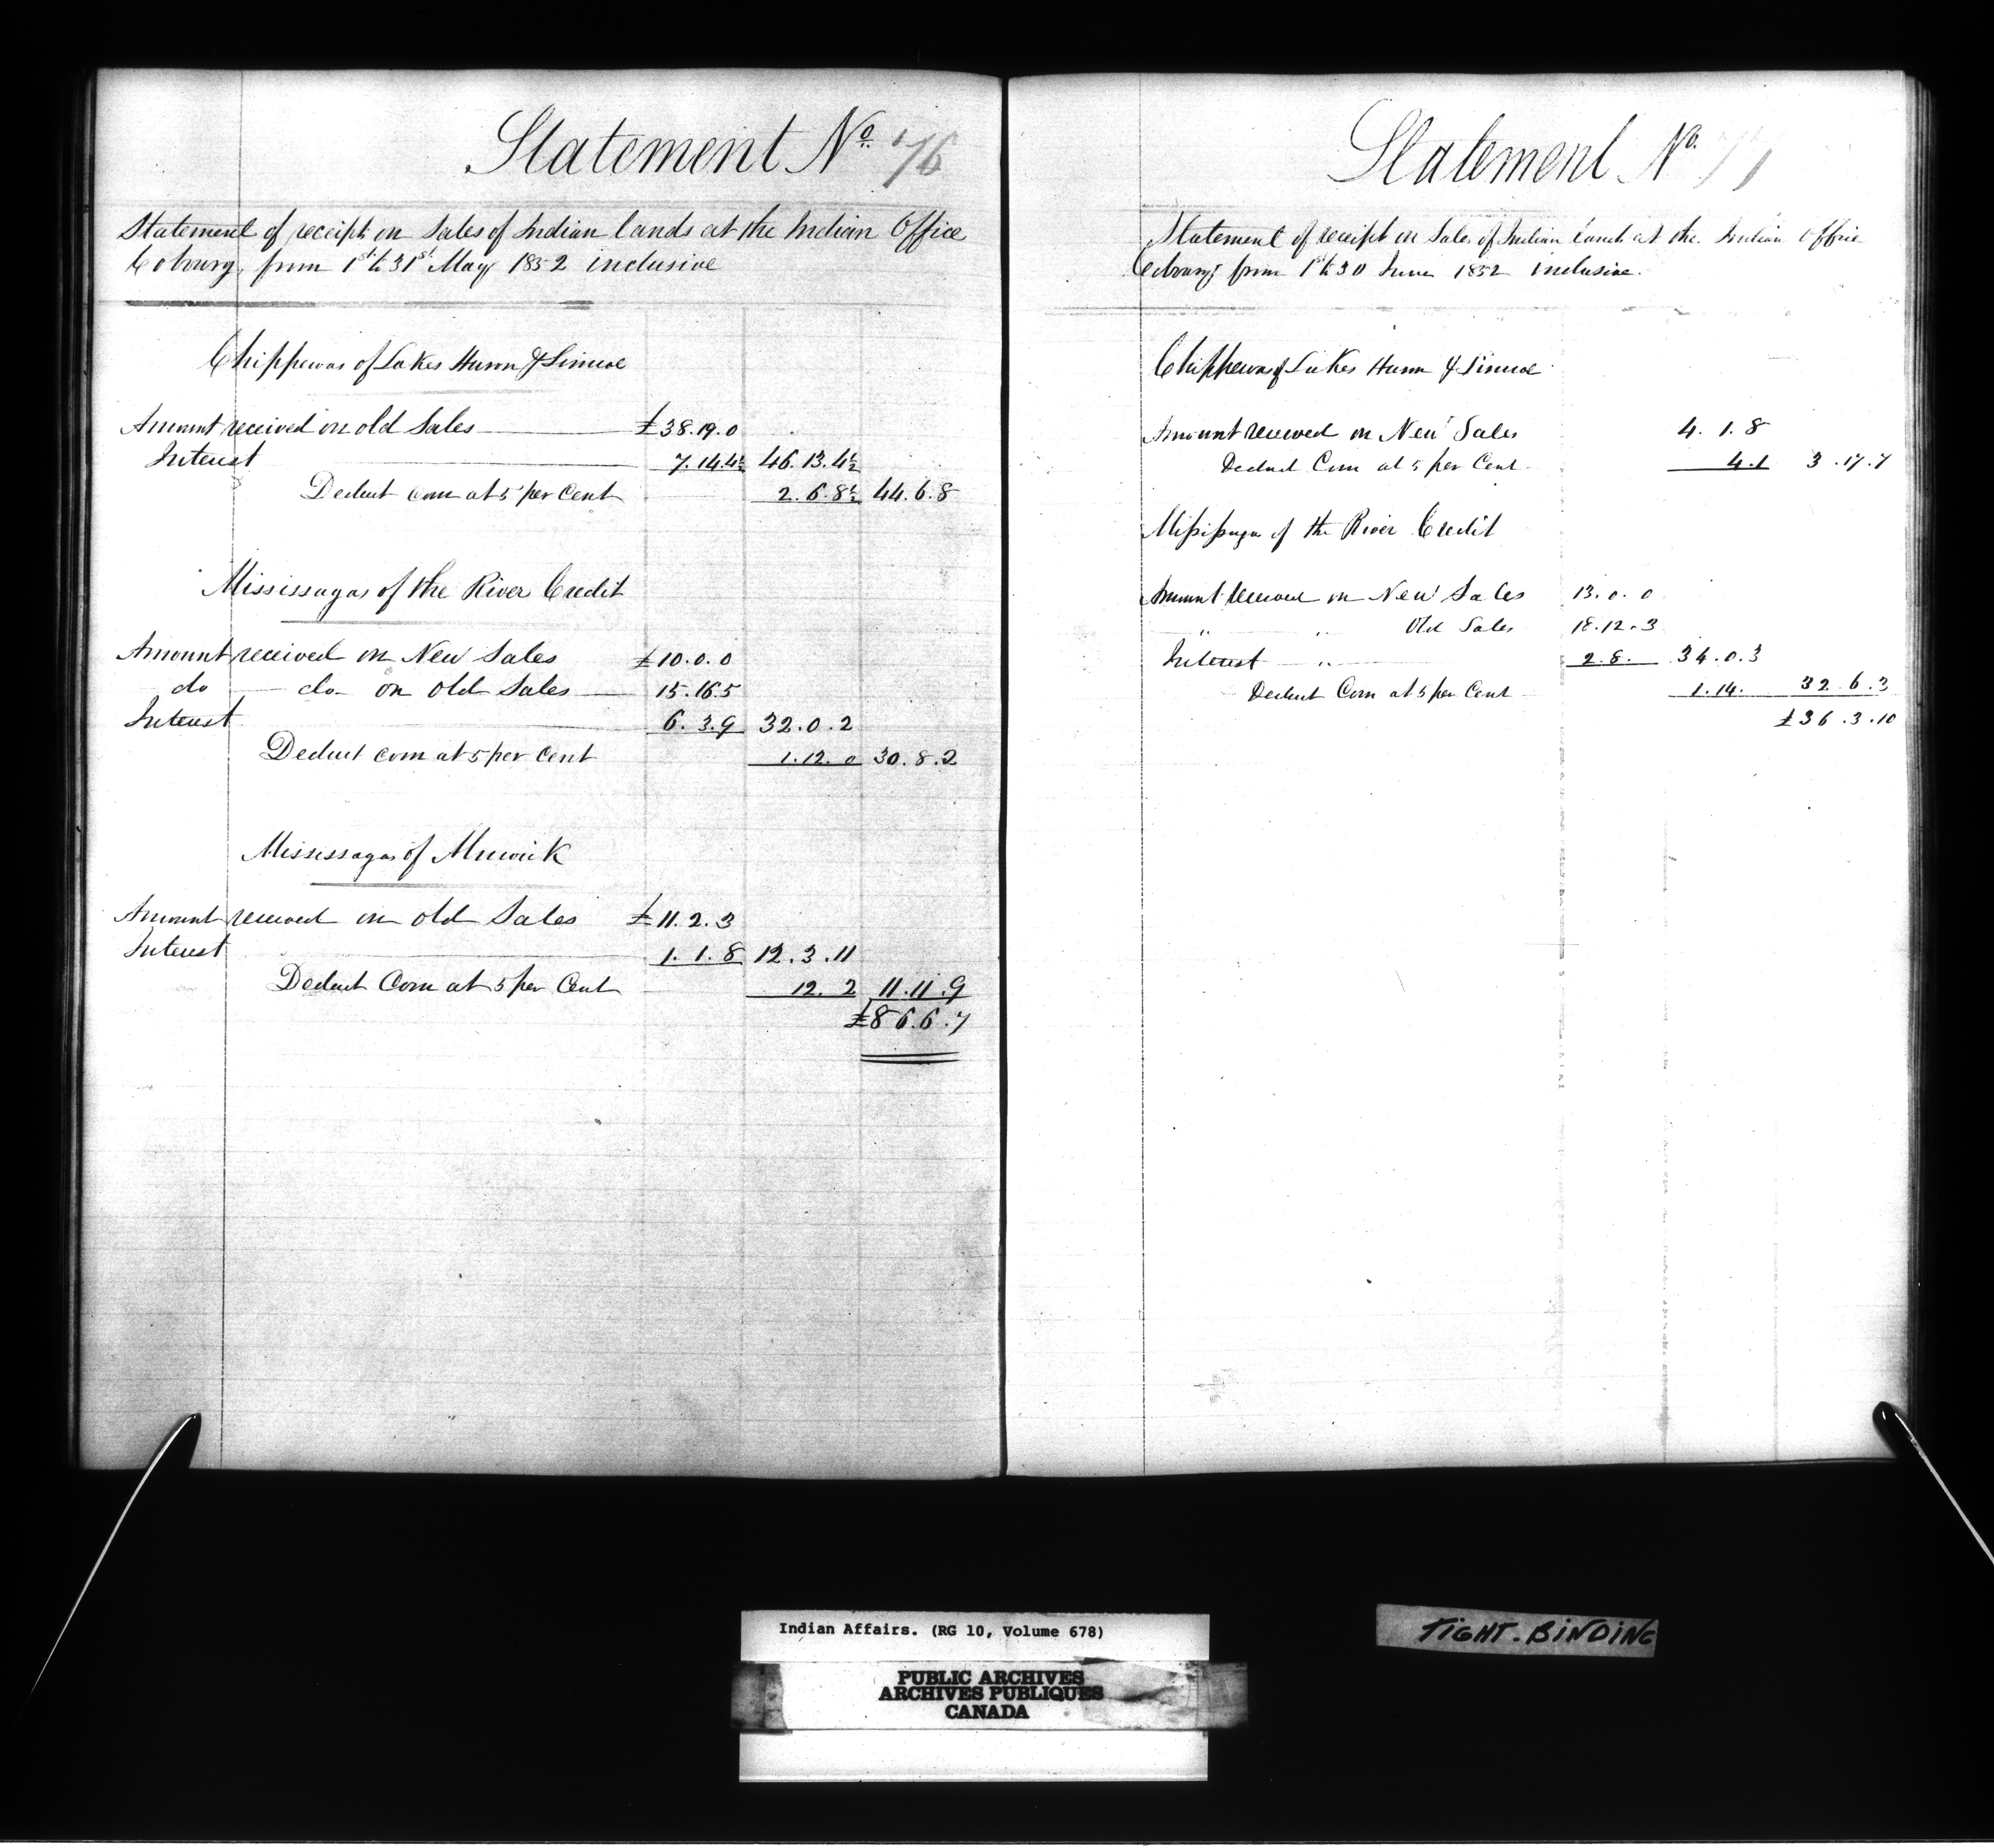 Statement No. 76
Statement of receipts on Sales of Indian lands at the Indian Office
Cobourg, from 1st to 31st May 1852 inclusive
Chippewas of Lakes Huron & Simcoe
Amount received on old Sales £38.19.0
Interest 7.14.4½ 46.13.4½
Deduct com at 5 per Cent 2.6.8½ 44.6.8
Mississagas of the River Credit
Amount received on New Sales £10.0.0
do do on old Sales 15.16.5
Interest 6.3.9 32.0.2
Deduct com at 5 per Cent 1.12.0 30.8.2
Mississagas of Alnwick
Amount received on old Sales £11.2.3
Interest 1.1.8 12.3.11
Deduct Com at 5 per Cent 12.2 11.11.9
£86.6.7
Statement No. 77
Statement of receipt on Sales of Indian Lands at the Indian Office
Cobourg from 1st to 30 June 1852 inclusive.
Chippewas of Lakes Huron & Simcoe
Amount received on New Sales 4.1.8
Deduct Com at 5 per Cent 4.1 3.17.7
Missisaga of the River Credit
Amount received on New Sales 13.0.0
" " Old Sales 18.12.3
Interest " 2.8. 34.0.3
Deduct Com at 5 per Cent 1.14. 32.6.3
£36.3.10
Indian Affairs. (RG 10, Volume 678)
PUBLIC ARCHIVES
ARCHIVES PUBLIQUES
CANADA
TIGHT-BINDING